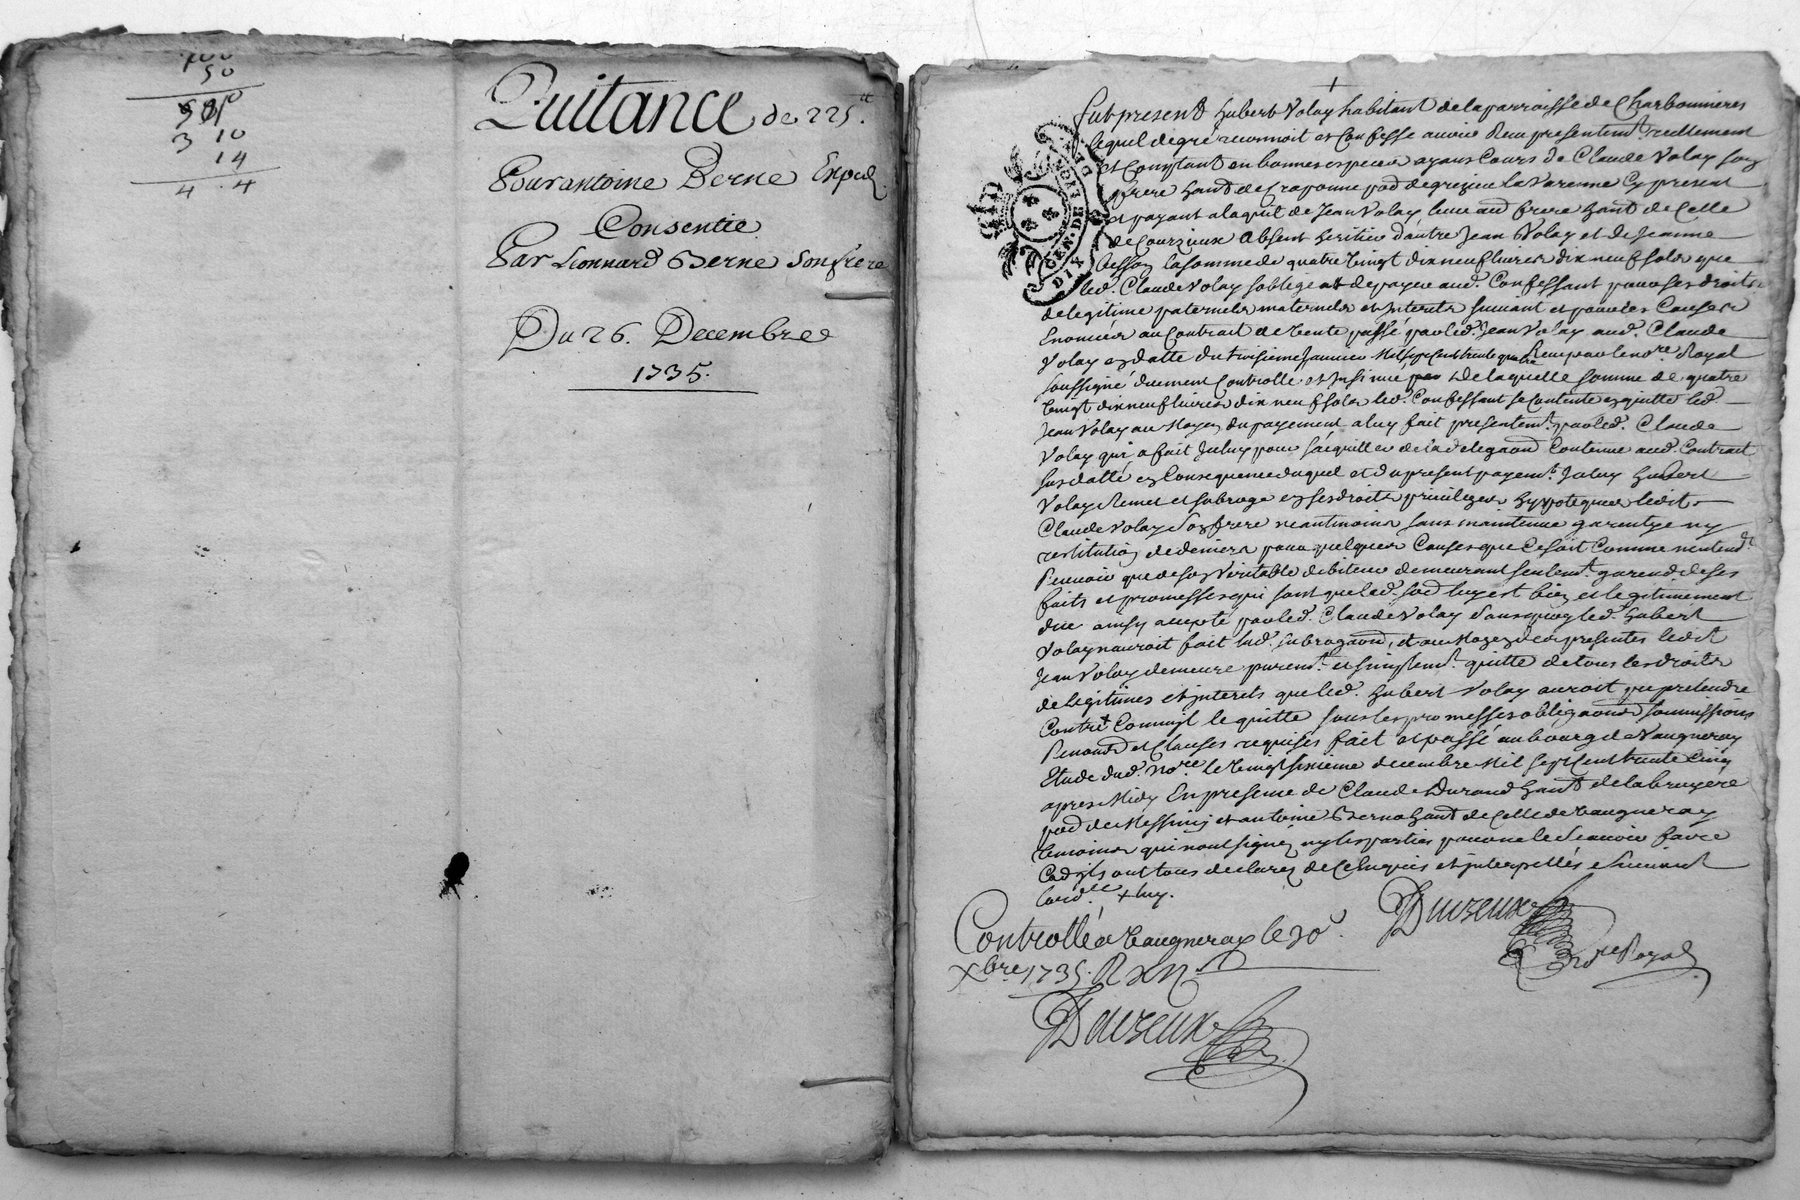 100
50
3 10
14
4 . 4
Quitance de 225.tt
Pour antoine Berne Exped.
Consentie
Par Lionnard Berne Son frere
Du 26. Decembre
1735.
+
fut present Hubert Volay habitant de la parroisse de Charbonnieres
lequel de gré reconnoit et Confesse avoir Receu presentemt. reellement
et Comptant en bonnes especes ayans Cours de Claude Volay son
frere hant de Craponne pad de grezieu la Varenne Cy present
et payant a laquit de Jean Volay leur aud frere hant de Celle
de Courzieux absent heritier dautre Jean Volay et de Jeanne
la somme de quatre vingt dix neuf livres dix neuf sols que
led. Claude Volay soblige de payer aud. Confessant pour ses droits
de legitime paternels maternels et interets suivant et pour les Causes
Enoncées au Contrait de vente passé par led. Jean Volay aud. Claude
Volay en datte du troisieme Janvier Mil sept Cent trente quatre Receu par le nore Royal
soussigné duement Controllé et Insinué de laquelle somme de quatre
vingt dix neuf livres dix neuf sols led. Confessant se Contente en quitte led.
Jean Volay au Moyen du payement a luy fait presentemt. par led. Claude
Volay qui a fait Iceluy pour sacquitter de la delegaon Contenue aud. Contrait
susdatté en Consequence duquel et du present payemt. Iceluy Hubert
Volay Remet et subroge en ses droits privileges hypoteques ledit
Claude Volay Son frere neantmoins sans maintenue garentye ny
restitution de deniers pour quelques Causes que Ce soit Comme nentendt
Recevoir que de son Veritable debiteur demeurant seulemt. garend de ses
faits et promesses qui sont que lad. so\e luy est bien et legitimement
due ainsy accepté par led. Claude Volay Sans quoy led. Hubert
Volay nauroit fait lad. subrogaon, et au Moyen des presentes ledit
Jean Volay demeure puremt. et simplemt. quitte de tous les droits
de legitimes et interets que led. Hubert Volay auroit pu pretendre
Contre Comme il le quitte sous les promesses obligaons soumissions
Renonons et Clauses requises fait et passé au bourg de Vaugneray
Etude dud. nore. le vingt sixieme decembre Mil sept Cent trente Cinq
apres Midy En presence de Claude Durand hant de la bruyere
pad de Messimy et antoine Berne hant de Celle de vaugneray
temoins qui nont signez ny les parties pour ne le Scavoir faire
ont tous declarez de Ce Enquis et interpellés Suivant
lordce. + luy.
Duvzeux
nore Royal
Controllé a Vaugneray le 30.
Xbre 1735. R
Duvzeux
GEN. DE LYON